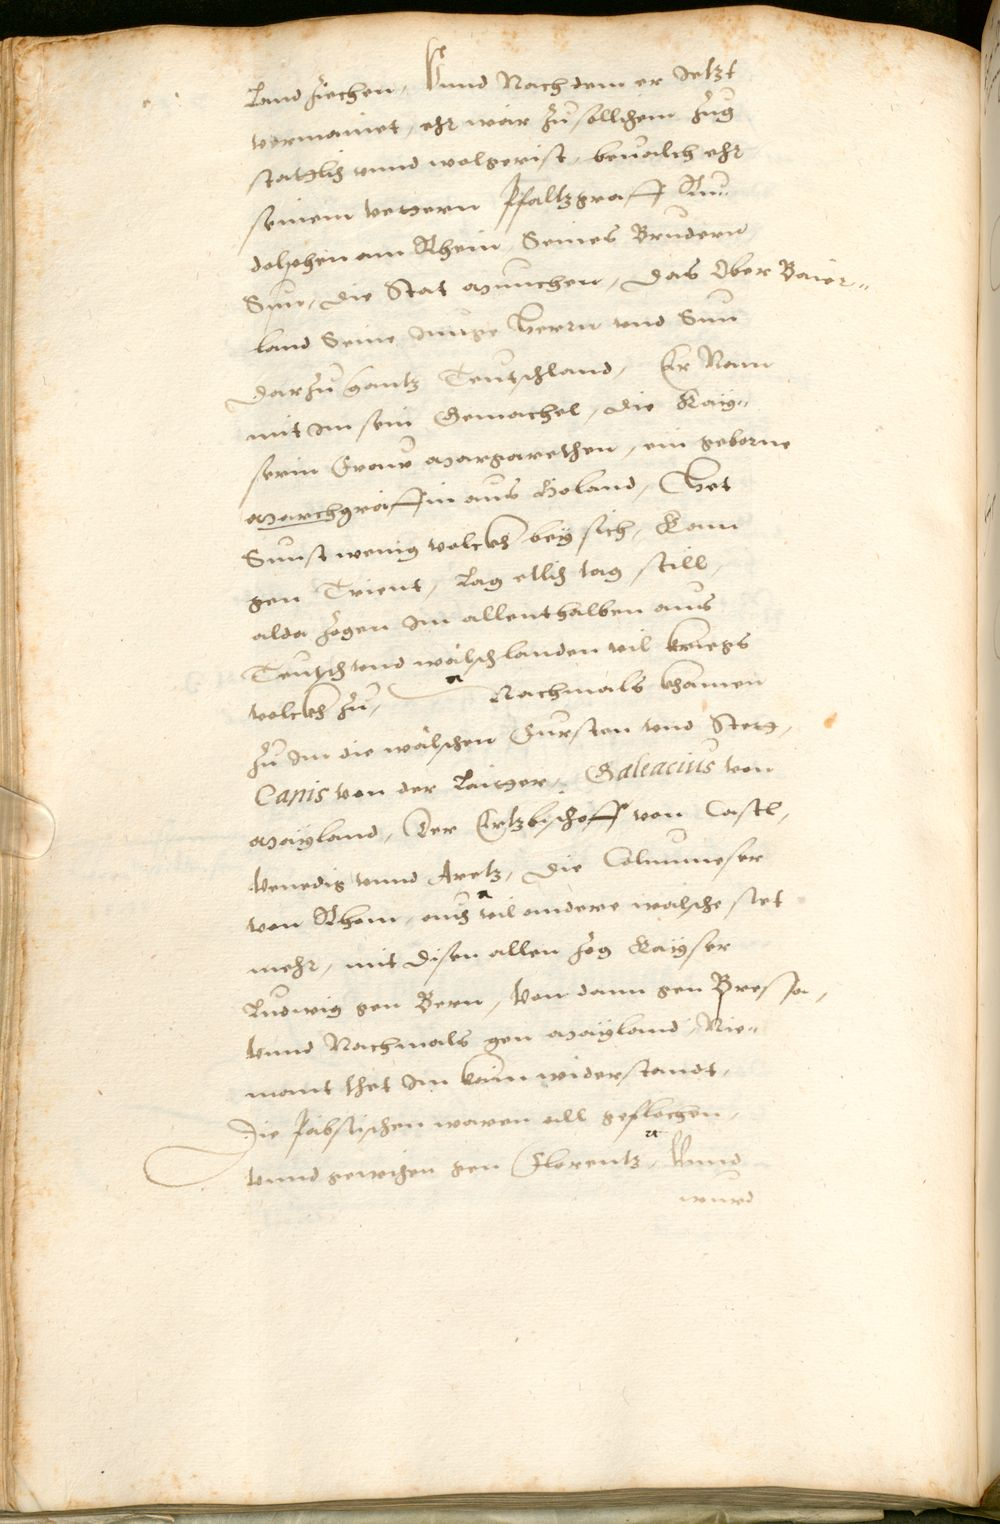 Land ziechen, Vnnd Nach dem er Jetzt
vermainet, ehr wär zu sollchem zug
statlich vnnd wolgerist, beualch ehr
seinem vettern Pfaltzgraff Ru-
dolphen am Rhein Seines Brudern
Sun, die Stat München, das Ober Baier-
land Seine Junge Herrn vnd Sun
darzu gantz Teutschland, Er Nam
mit Im sein Gemachel, die Kay-
serin Fraw Margarethen, ein geborne
Marchgräffin aus Holand, Het
Sunst wenig volckh bey sich, Kam
gen Trient, Lag etlich tag still,
alda zogen Im allenthalben aus
Teutsch vnd wälschlanden vil kriegs
volckh zu, Nachmals khamen
zu Im die wälschen Fursten vnd Stett,
Canis von der Laitter, Galeacius von
Mayland, Der Ertzbischoff von Castl,
Venedig vnnd Aretz, die Columneser
von Rhom, auch vil andere wälsche stet
mehr, mit disen allen zog Kayser
Ludwig gen Bern, Von dann gen Bressa,
Vnnd Nachmals gen Mayland, Nie-
mant thet Im kain widerstandt,
Die Päbstischen waren all geflochen,
vnnd gewichen gen Florentz, Vnnd
wurd